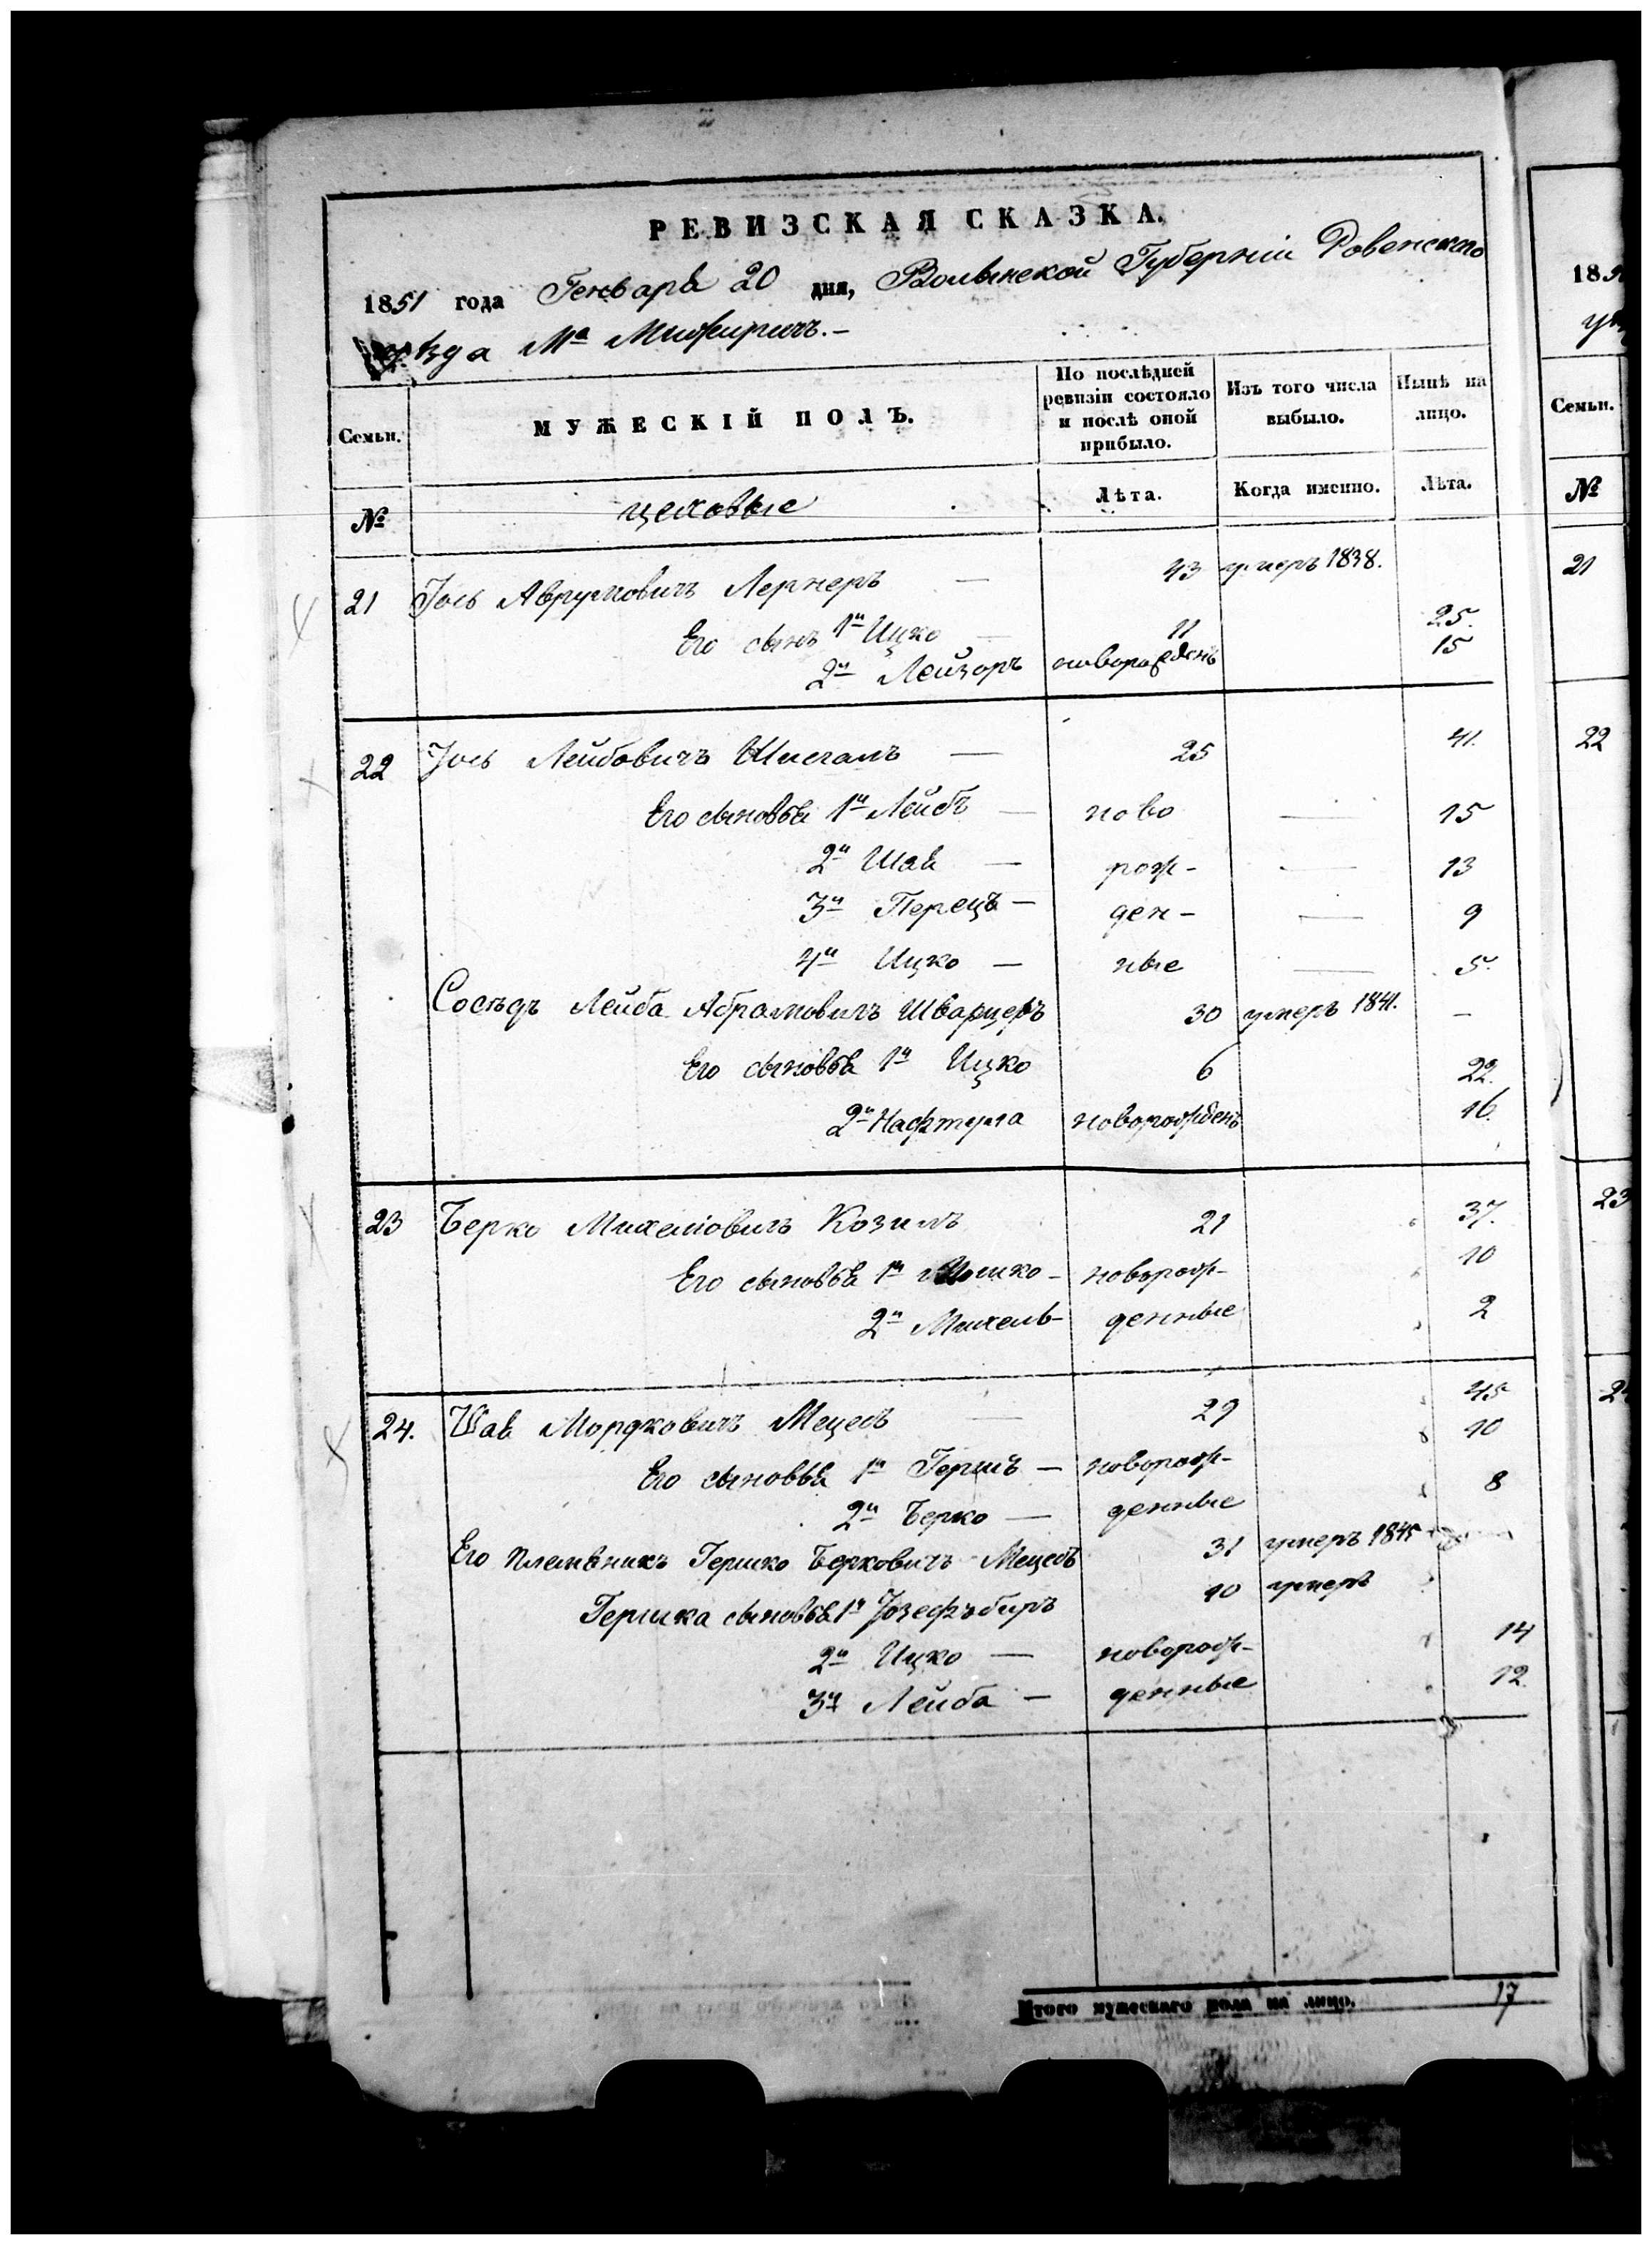 РЕВИЗСКАЯ СКАЗКА.
1851 года Генваря 20 дня, Волынской Губерніи Ровенскаго
уѣзда Мᵃ Межиричъ.-
Семьи.
МУЖЕСКІЙ ПОЛЪ.
По послѣдней ревизіи состояло и послѣ оной прибыло.
Изъ того числа выбыло.
Нынѣ на лицо.
№
цеховые
Лѣта.
Когда именно.
Лѣта.
21 Іось Аврумовичъ Лернеръ — 43 умеръ 1838.
Его сынъ 1й Ицко — 11 25.
2й Лейзоръ новорожденъ 15
22 Іось Лейбовичъ Шисгалъ — 25 41.
Его сыновья 1й Лейбъ — ново — 15
2й Шая — рож- — 13
3й Перецъ — ден- — 9
4й Ицко — ные — 5.
Сосѣдъ Лейба Абрамовичъ Шварцеръ 30 умеръ 1841. —
Его сыновья 1й Ицко 6 22.
2й Нафтула новорожденъ 16.
23 Берко Михелювичъ Козилъ 21 37.
Его сыновья 1й Мошко - новорож- 10
2й Михель- денные 2
24. Шая Мордковичъ Мецесъ — 29 45
Его сыновья 1й Гершъ — новорож- 10
2й Берко — денные 8
Его племянникъ Гершко Берковичъ Мецесъ 31 умеръ 1845
Гершка сыновья 1й Іозефъбиръ 10 умеръ
2й Ицко — новорож- 14
3й Лейба — денные 12.
Итого мужескаго пола на лицо. 17
185
Семьи.
№
21
22
23